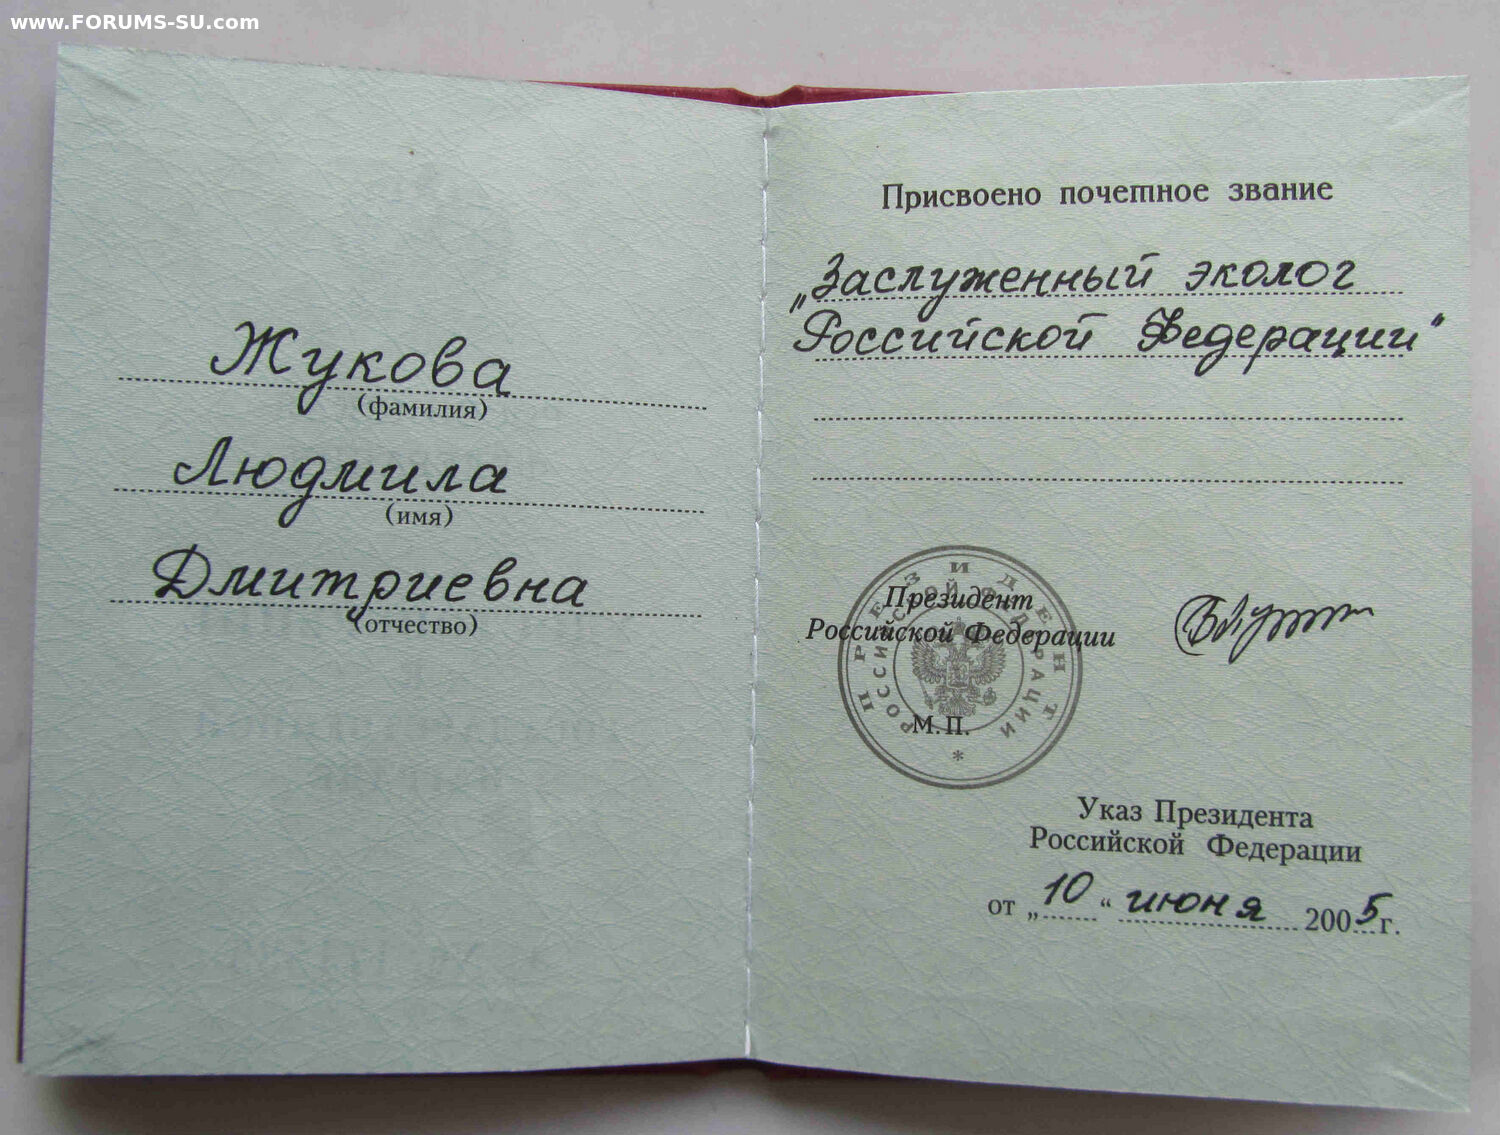 www.FORUMS-SU.com
Жукова
(фамилия)
Людмила
(имя)
Дмитриевна
(отчество)
Присвоено почетное звание
„Заслуженный эколог
Российской Федерации“
Президент
Российской Федерации
ПРЕЗИДЕНТ
РОССИЙСКОЙ ФЕДЕРАЦИИ
*
М.П.
Указ Президента
Российской Федерации
от „10“ июня 2005 г.